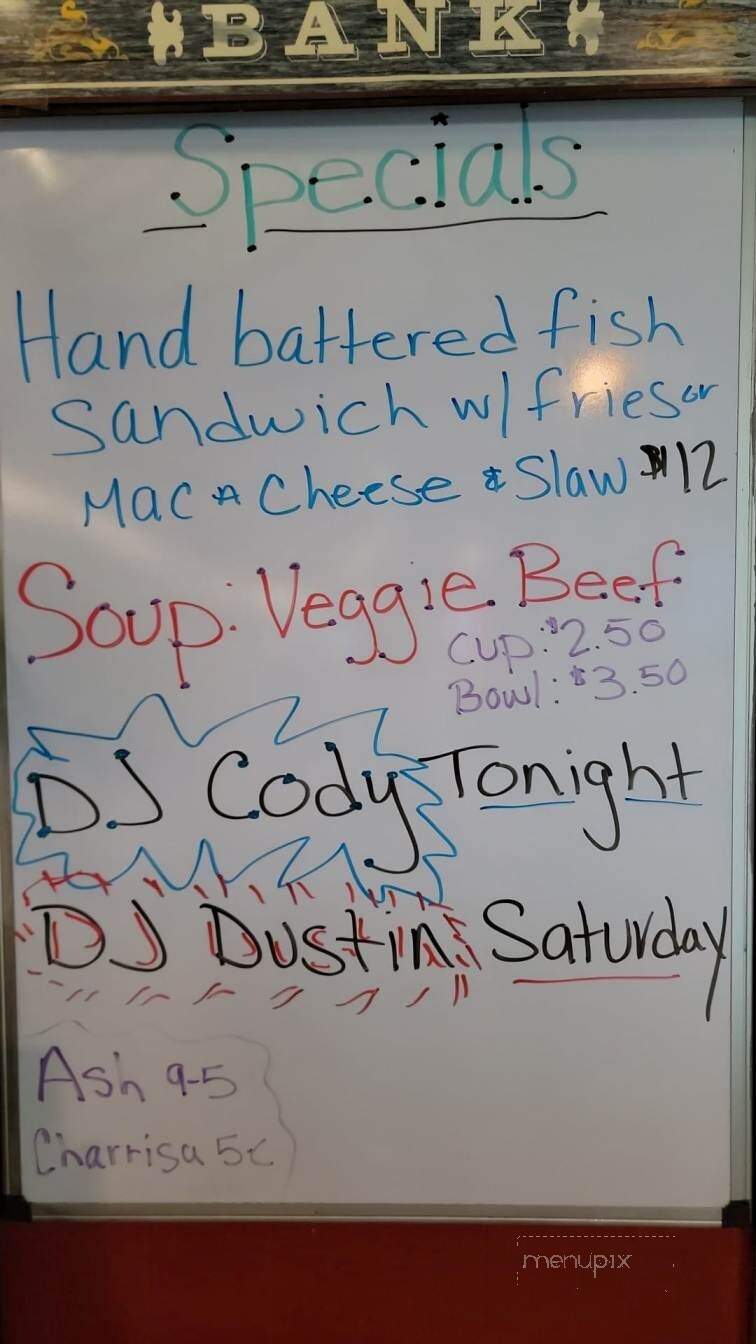 BANK
Specials
Hand battered fish
Sandwich w/ fries or
Mac & Cheese & Slaw $12
Soup: Veggie Beef
Cup: $2.50
Bowl: $3.50
DJ Cody Tonight
DJ Dustin Saturday
Ash 9-5
Charrisa 5c
menupix